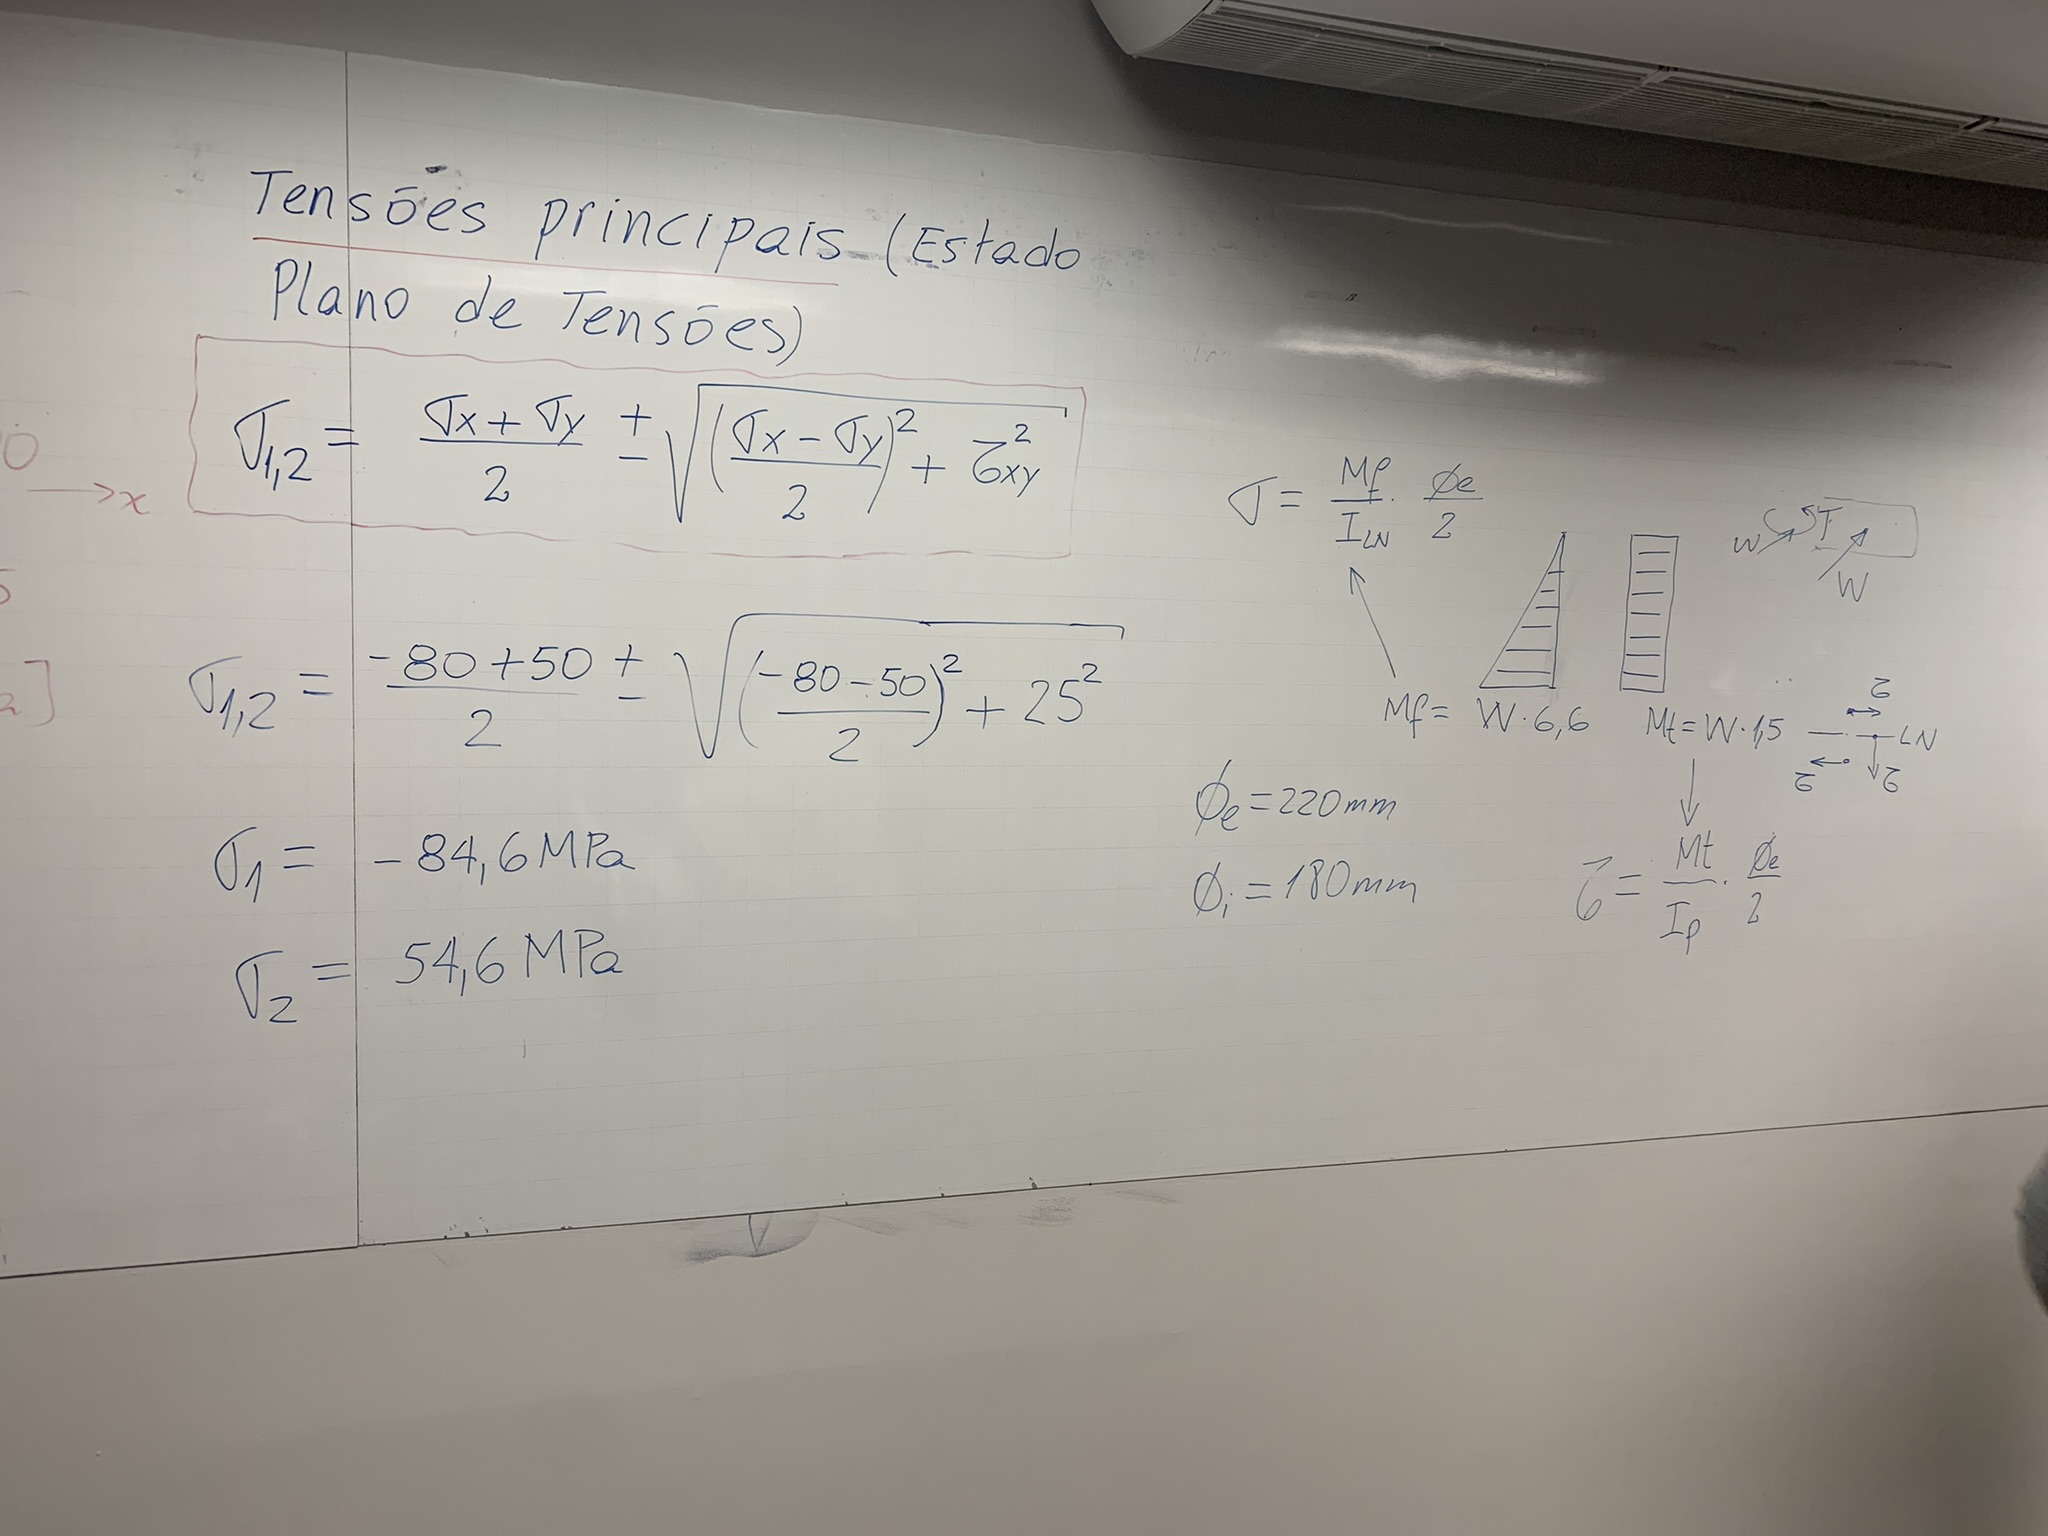 Tensões principais (Estado
Plano de Tensões)
σ1,2 = (σx + σy)/2 ± √(((σx - σy)/2)² + τxy²)
σ1,2 = (-80+50)/2 ± √(((-80-50)/2)² + 25²)
σ1 = -84,6 MPa
σ2 = 54,6 MPa
→x
]
σ = Mf/ILN · øe/2
W T
W
Mf = W·6,6
Mt = W·1,5
τ
LN
τ τ
øe = 220mm
øi = 180mm
τ = Mt/Ip · øe/2